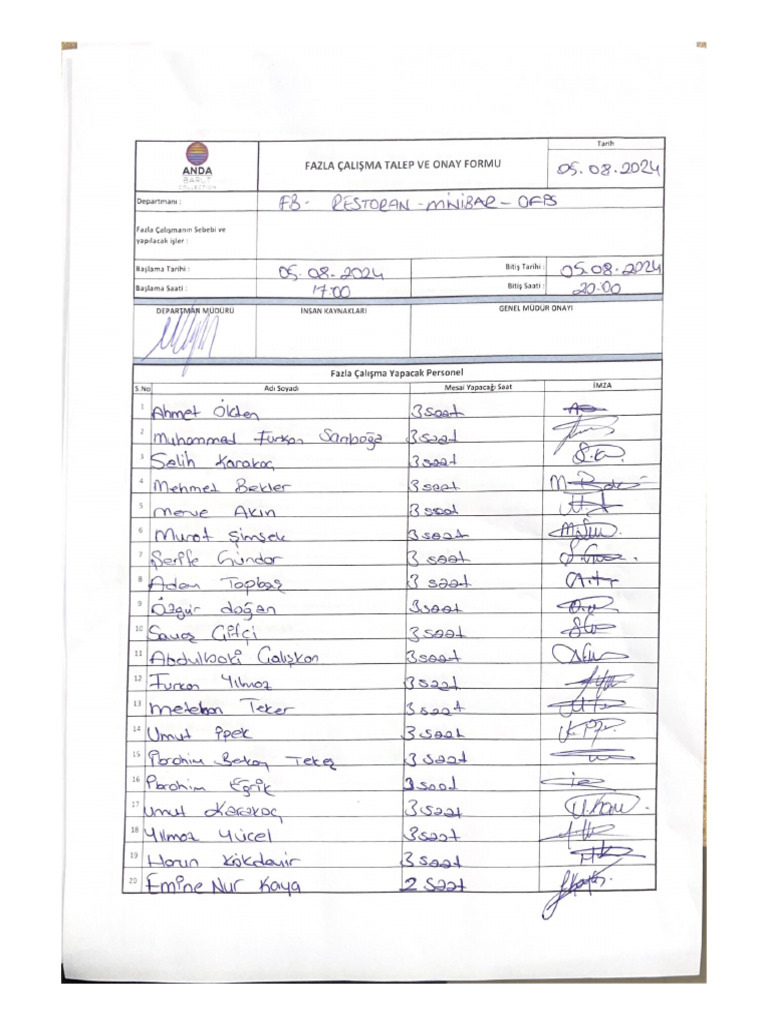 Tarih
ANDA
BARUT
COLLECTION
FAZLA ÇALIŞMA TALEP VE ONAY FORMU
05.08.2024
Departmanı : FB - RESTORAN - MİNİBAR - OFİS
Fazla Çalışmanın Sebebi ve
yapılacak işler :
Başlama Tarihi : 05.08.2024 Bitiş Tarihi : 05.08.2024
Başlama Saati : 17:00 Bitiş Saati : 20:00
DEPARTMAN MÜDÜRÜ İNSAN KAYNAKLARI GENEL MÜDÜR ONAYI
Fazla Çalışma Yapacak Personel
S.No Adı Soyadı Mesai Yapacağı Saat İMZA
1 Ahmet Ökten 3 saat
2 Muhammed Furkan Sarıboğa 3 saat
3 Salih Karakoç 3 saat
4 Mehmet Bekler 3 saat
5 Merve Akın 3 saat
6 Murat Şimşek 3 saat
7 Şerife Gündor 3 saat
8 Adem Topbaş 3 saat
9 Özgür doğan 3 saat
10 Savaş Çiftçi 3 saat
11 Abdulbaki Çalışkan 3 saat
12 Furkan Yılmaz 3 saat
13 Metehan Teker 3 saat
14 Umut İpek 3 saat
15 İbrahim Berkay Tekeş 3 saat
16 İbrahim Eğrik 3 saat
17 Umut Karakoç 3 saat
18 Yılmaz Yücel 3 saat
19 Harun Kökdemir 3 saat
20 Emine Nur Kaya 2 saat